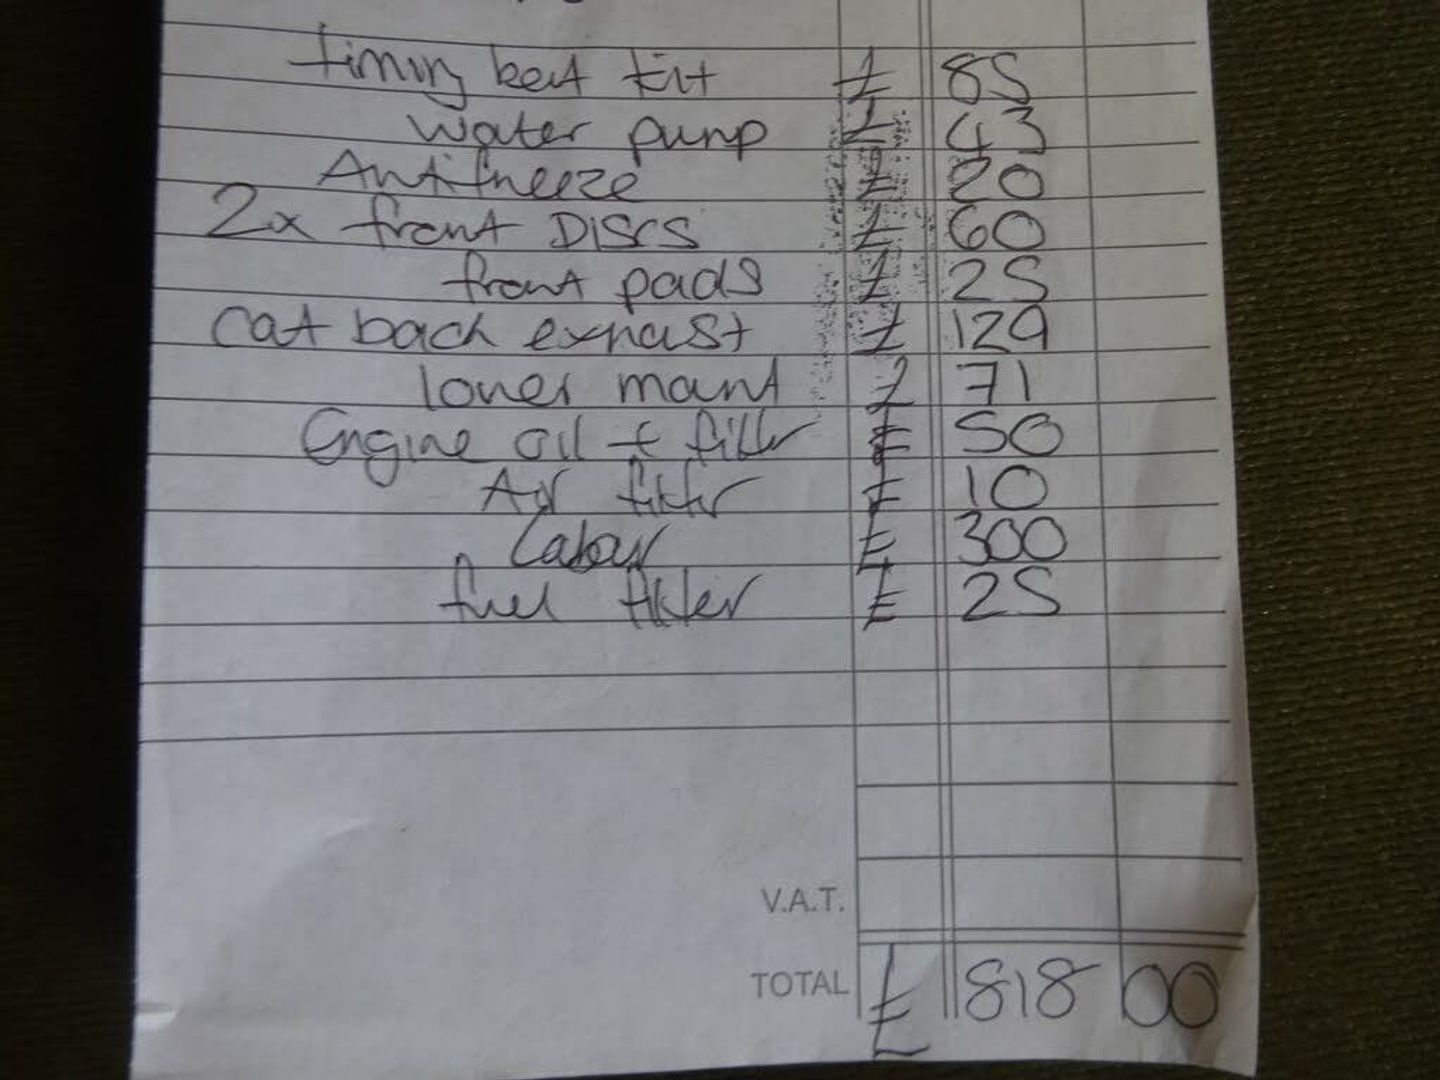 timing belt kit £ 85
water pump £ 43
Antifreeze £ 20
2x front DISCS £ 60
front pads £ 25
Cat back exhaust £ 129
lower mount £ 71
Engine oil + filter £ 50
Air filter £ 10
Labour £ 300
fuel filter £ 25
V.A.T.
TOTAL £ 818 00